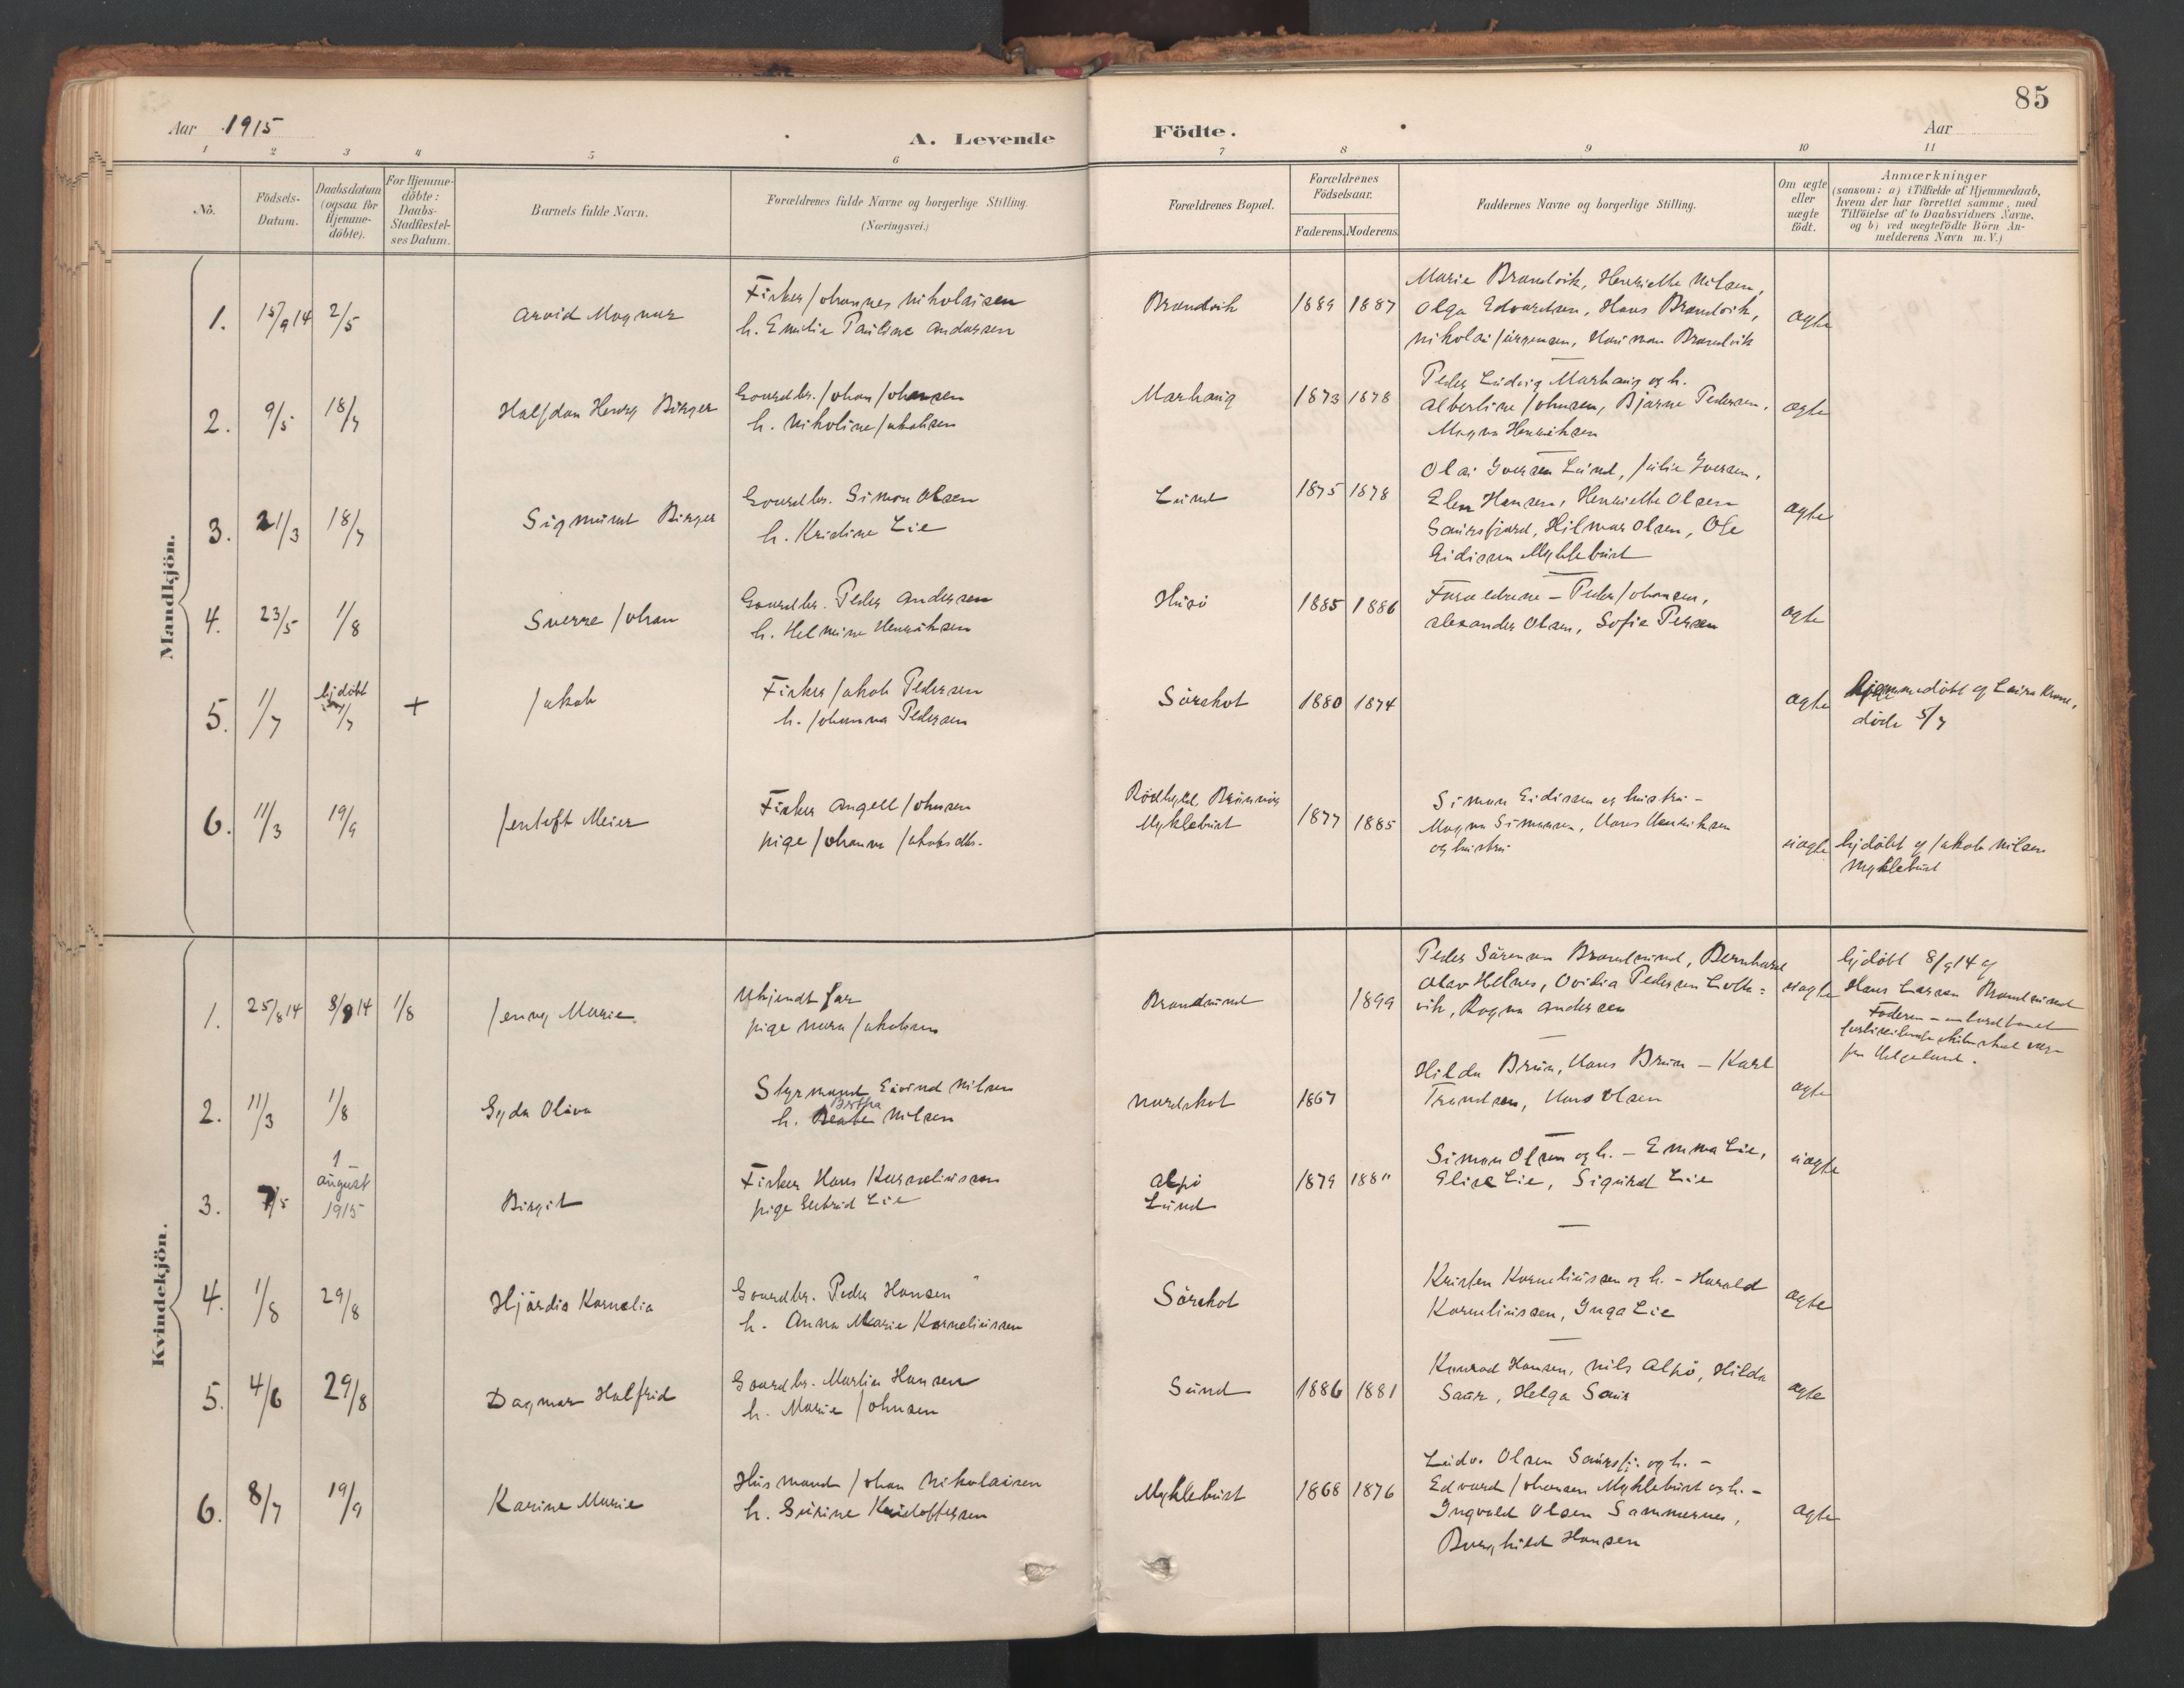 85
Aar 1915
A. Levende Födte.
Aar
1 2 3 4 5 6 7 8 9 10 11
No.
Födsels-Datum.
Daabsdatum (ogsaa for Hjemme-döbte).
For Hjemme-döbte: Daabs-Stadfæstel-ses Datum.
Barnets fulde Navn.
Forældrenes fulde Navne og borgerlige Stilling. (Næringsvei.)
Forældrenes Bopæl.
Forældrenes Födselsaar.
Faderens. Moderens.
Faddernes Navne og borgerlige Stilling.
Om ægte eller uægte födt.
Anmærkninger
(saasom: a) i Tilfælde af Hjemmedaab,
hvem der har forrettet samme, med
Tilföielse af to Daabsvidners Navne.
og b) ved uægtefödte Börn An-
melderens Navn m. V.)
Mandkjön.
1. 15/9 14 2/5 Arvid Magnar
Fisker Johannes Nikolaisen
h. Emilie Pauline Andersen
Brandvik 1889 1887
Marie Brandvik, Henriette Nilsen,
Olga Edvardsen, Hans Brandvik,
Nikolai Jürgensen, Brandvik
ægte
2. 9/5 18/7 Halfdan Henry Birger
Gaardbr. Johan Johansen
h. Nikoline Jakobsen
Marhaug 1873 1878
Peder Ludvig Marhaug og h.
Albertine Johnsen, Bjarne Pedersen,
Magna Henriksen
ægte
3. 21/3 18/7 Sigmund Birger
Gaardbr. Simon Olsen
h. Kristine Lie
Lund 1875 1878
Olai Iversen Lund, Julie Iversen,
Elen Hansen, Henriette Olsen
Saursfjord, Hilmar Olsen, Ole
Eidissen Myklebust
ægte
4. 23/5 1/8 Sverre Johan
Gaardbr. Peder Andersen
h. Helmine Henriksen
Husö 1885 1886
Forældrene – Peder Johansen,
Alexander Olsen, Sofie Persen
ægte
5. 1/7 hjdöbt 1/7 + Jakob
Fisker Jakob Pedersen
h. Johanna Pedersen
Sörskot 1880 1874
ægte
hjemmedöbt af Laura Krane,
döde 5/7
6. 11/3 19/9 Jentoft Meier
Fisker Angell Johnsen
pige Johanna Jakobsdtr.
Myklebust 1877 1885
Simon Eidissen og hustru –
Magna Simonsen, Hans Henriksen
og hustru
uægte
hjdöbt af Jakob Nilsen
Myklebust
Kvindekjön.
1. 25/8 14 8/9 14 1/8 Jenny Marie
Ukjendt far
pige Nora Jakobsen
Brandsund 1899
Peder Sörensen Brandsund, Bernhard
Olav Helnes, Ovidia Pedersen Leth=
vik, Ragna Andersen
uægte
hjdöbt 8/9 14 af
Hans Larsen Brandsund
Faderen – ombord paa et
forbiseilende skib skal være
fra Helgeland.
2. 11/3 1/8 Gyda Oliva
Styrmand Eivind Nilsen
Bertha
h. Beate Nilsen
Nordskot 1867
Hilda Brun, Hans Brun – Karl
Trondsen, Hans Olsen
ægte
3. 7/5 1 august 1915 Birgit
Fisker Hans Korneliussen
pige Gudrid Lie
Alpö
Lund
1879 188"
Simon Olsen og h. – Emma Lie,
Elise Lie, Sigurd Lie
uægte
4. 1/8 29/8 Hjördis Kornelia
Gaardbr. Peder Hansen
h. Anna Marie Korneliussen
Sörskot
Kristen Korneliussen og h. – Harald
Korneliussen, Inga Lie
ægte
5. 4/6 29/8 Dagmar Halfrid
Gaardbr. Martin Hansen
h. Marie Johnsen
Sund 1886 1881
Konrad Hansen, Nils Alpö, Hilda
Saur, Helga Saur
ægte
6. 8/7 19/9 Karine Marie
Husmand Johan Nikolaisen
h. Gurine Kristoffersen
Myklebust 1868 1876
Ludv. Olsen Saursfj. og h. –
Edvard Johansen Myklebust og h. –
Ingvald Olsen Sammernes,
Borghild Hansen
ægte